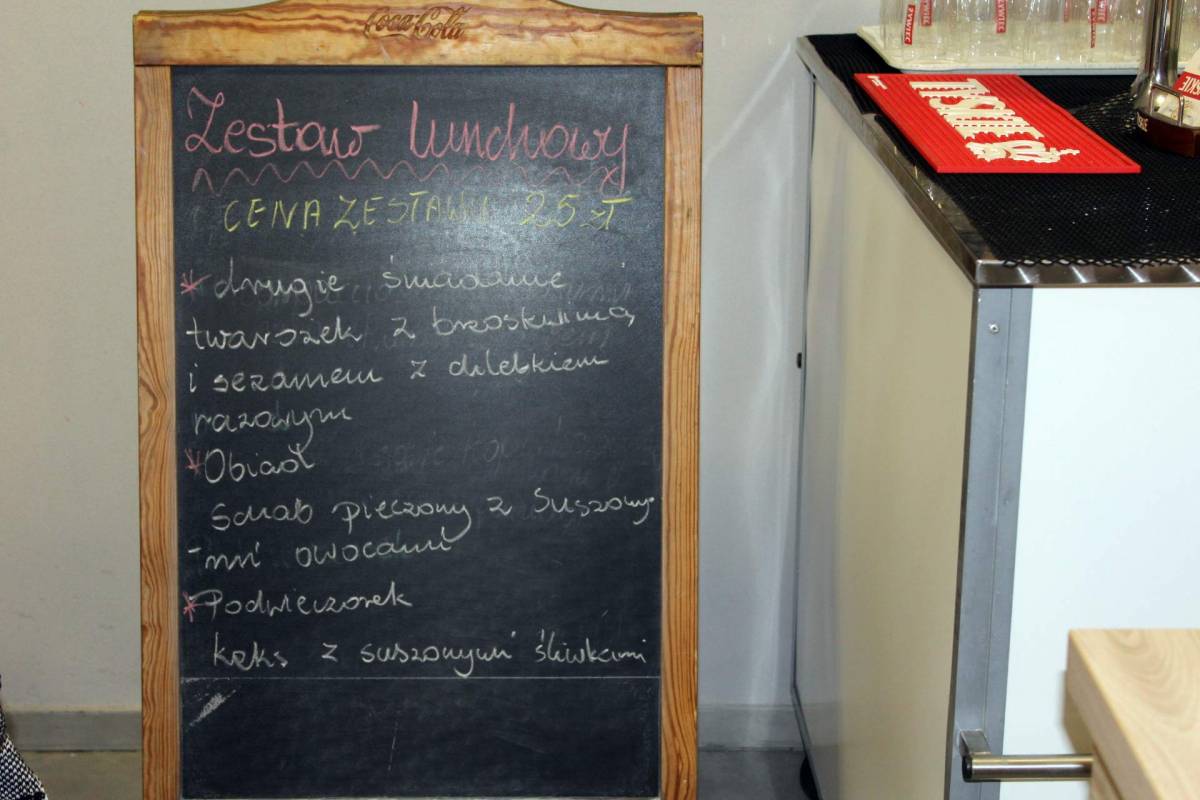 Coca-Cola
Zestaw lunchowy
CENA ZESTAWU 25 zł
* drugie śniadanie
twarożek z brzoskwinią
i sezamem z chlebkiem
razowym
* Obiad
Schab pieczony z suszony-
-mi owocami
* Podwieczorek
keks z suszonymi śliwkami
ŻYWIEC
ŻYWIEC
ŻYWIEC
TYSKIE
SKIE